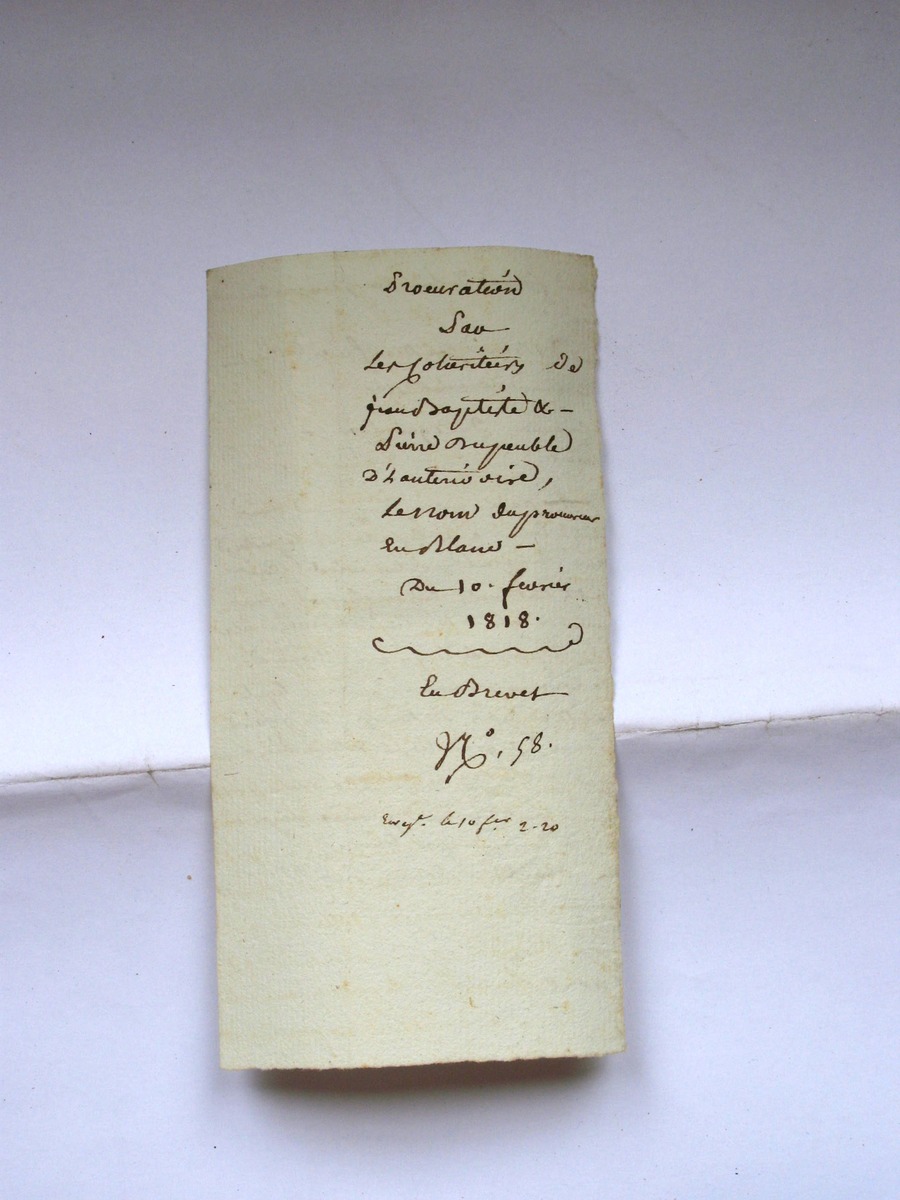 Procuration
Par
Les Coheritiers de
jean Baptiste &
Pierre Dupeuble
D'hauterivoire,
Le nom du procureur
En Blanc
Du 10. fevrier
1818.
En Brevet
No. 58.
Enregt. le 10 fer 2-20